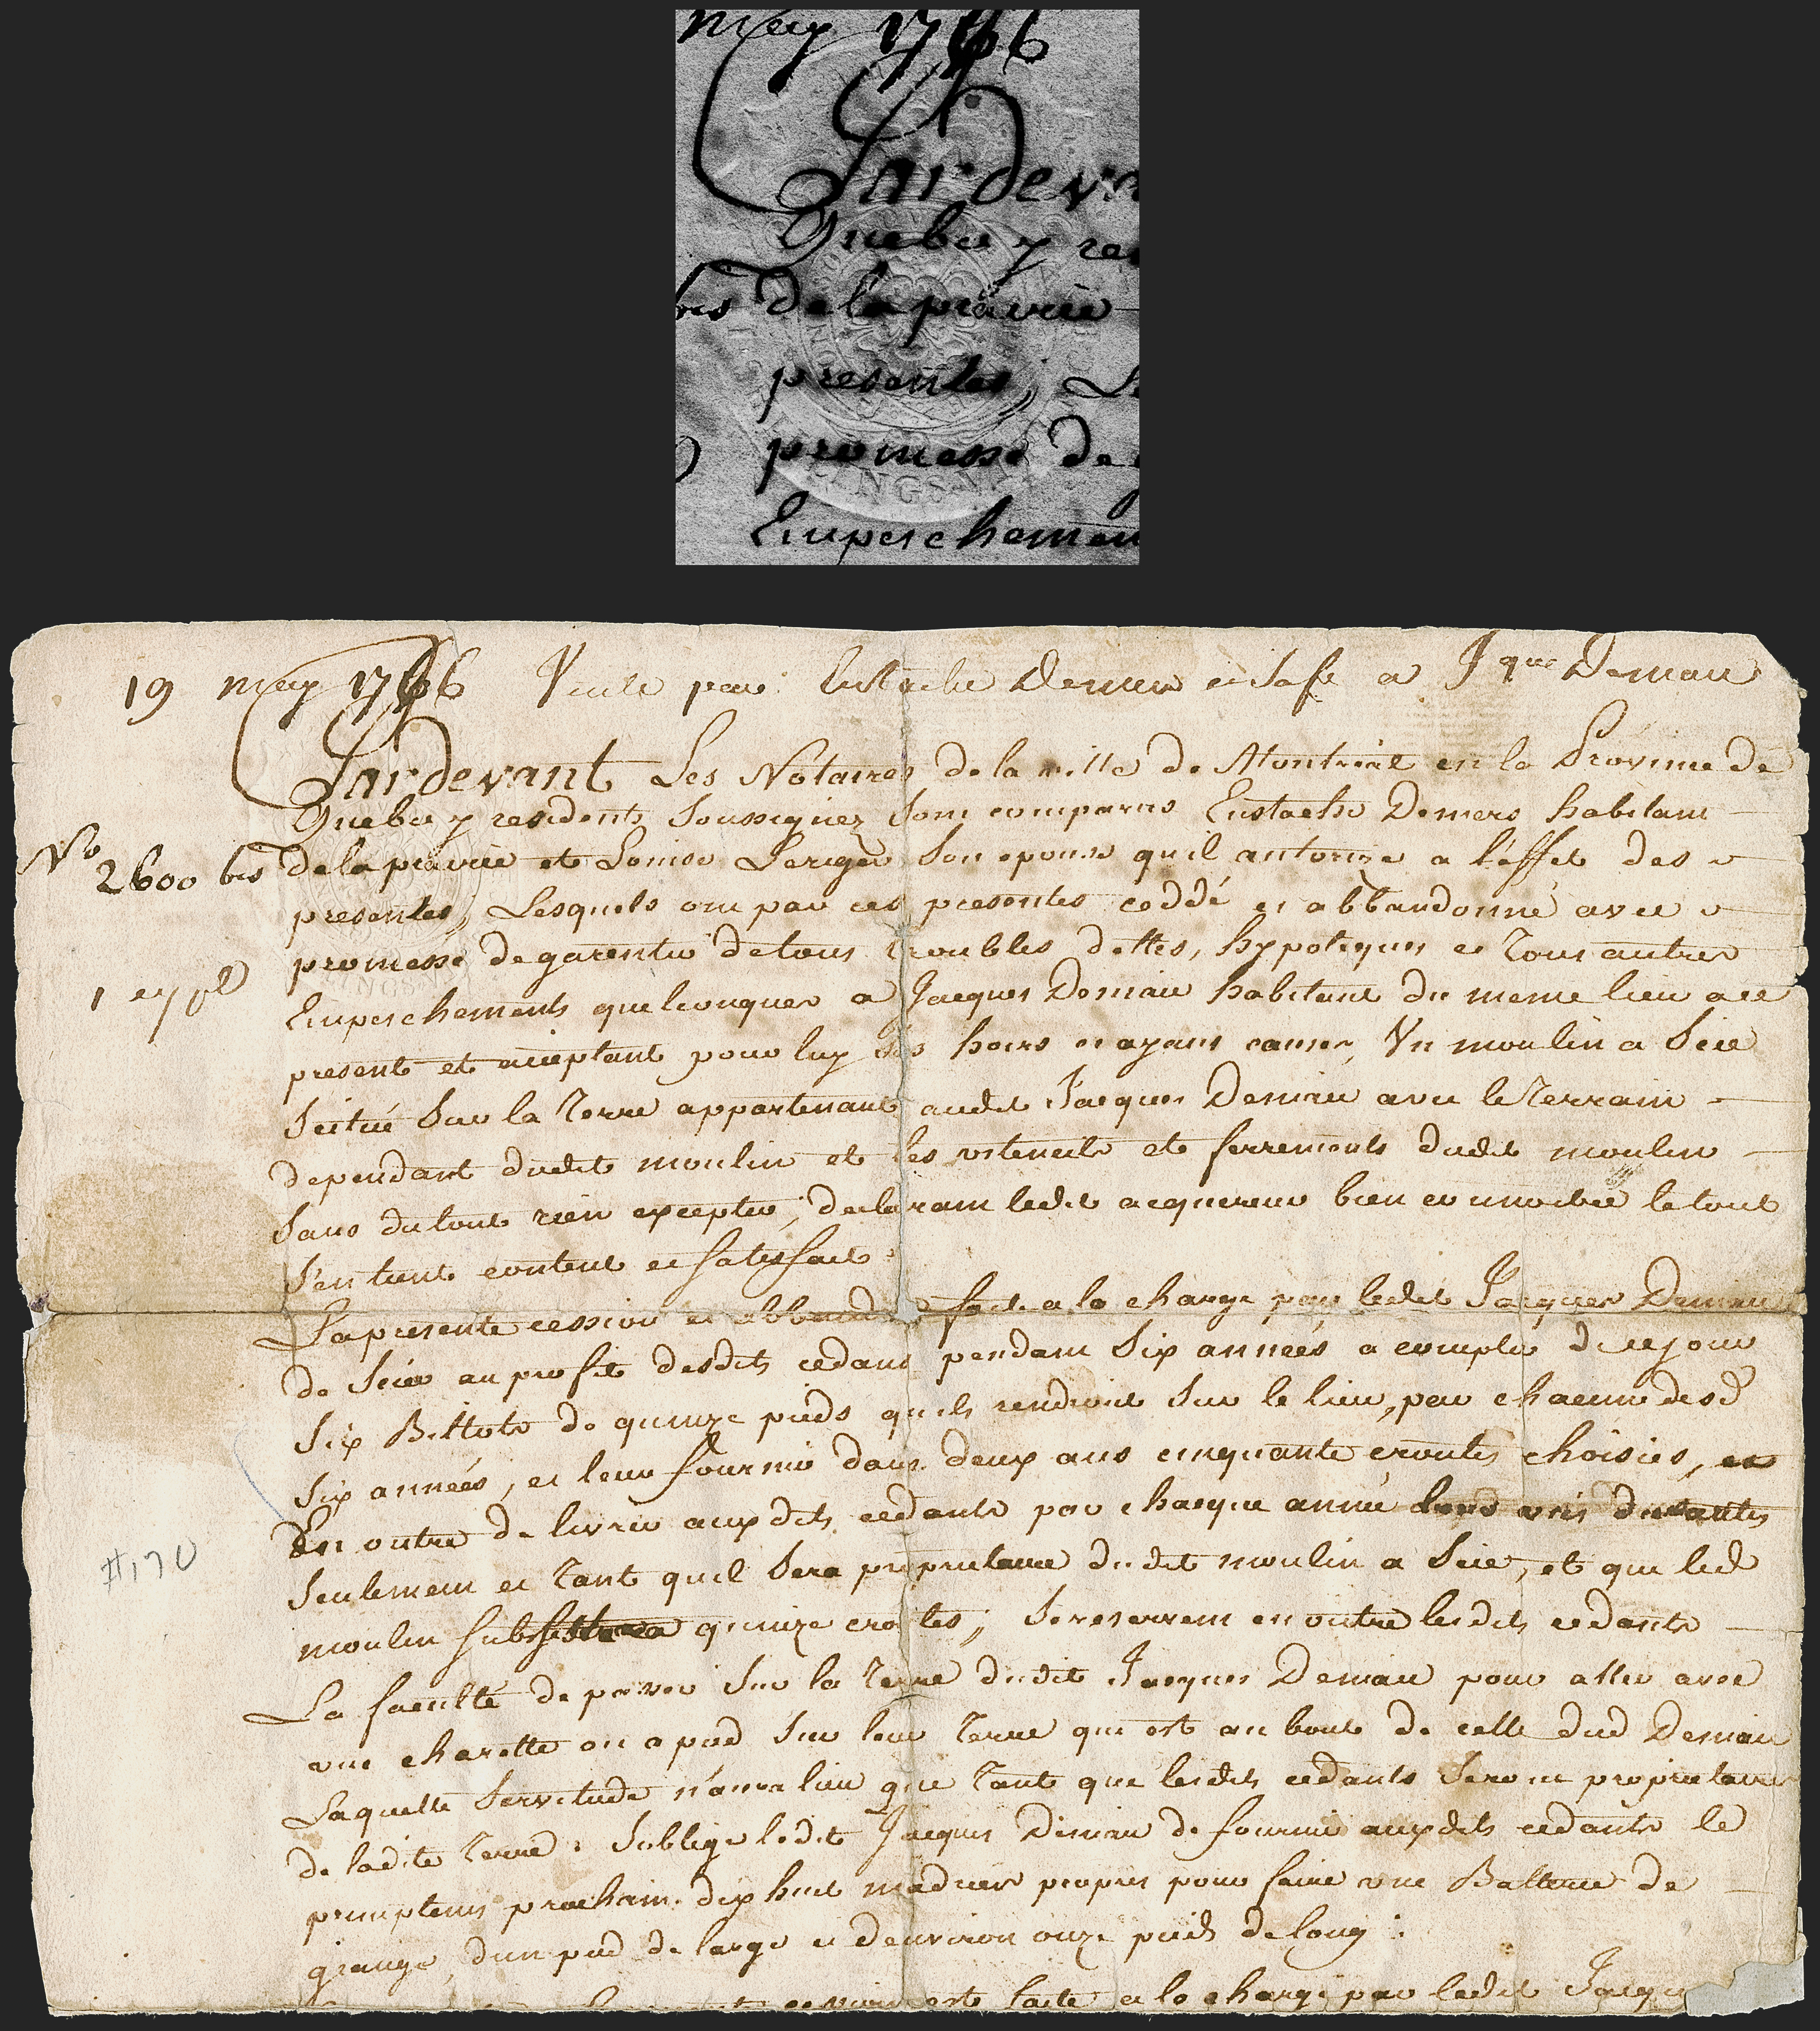 may 1766
Pardeva
Quebec y re
bis de la prairie
presentes, Le
promesse de
NGSN
Empeschemen
19 may 1766 Vente par Eustache Demers et sa fe a Jque Demers
Pardevant Les Notaires de la ville de Montreal en la Province de
Quebec y residents Soussignez Sont comparus Eustache Demers habitant
No 2600 bis
de la prairie et Louise Leriger Son epouse quil autorize a l'effet des
presentes, Lesquels ont par ces presentes ceddé et abbandonné avec
promesse de garentir de tous troubles dettes, hypoteques et Tous autres
1 expl
Empeschements quelconques a Jacques Demers habitant du meme lieu a ce
present et aceptant pour luy ses hoirs et ayans cause, Un moulin a Scie
Scitué Sur la Terre appartenant audit Jacques Demers avec le Terrain
dependant dudit moulin et les ustencils et ferrements dudit moulin
Sans du tout rien excepter, declarant ledit acquereur bien connoitre le tout
S'en tient content et satisfait.
La presente cession et abband faite a la charge par ledit Jacques Demers
de Scier au profit desdits cedans pendant Six années a compter de ce jour
Six Billots de quinze pieds quils rendront Sur le lieu, par chacune desd
Six années, et leur fournir dans deux ans cinquante croutes choisies, et
En outre de livrer auxdits cedants par chaque année
Seulement et Tant quil Sera proprietaire dudit moulin a Scie, et que led
#170
moulin subsistera quinze croutes; Se reservent en outre lesdits cedants
La faculté de passer Sur la Terre dudit Jacques Demers pour aller avec
une charette ou a pied Sur leur Terre qui est au bout de celle dud Demers
Laquelle Servitude n'aura lieu que Tant que lesdits cedants Seront proprietaires
de ladite Terre. S'oblige ledit Jacques Demers de fournir auxdits cedants le
printems prochain dix huit madriers propres pour faire une Batterie de
grange, d'un pied de large et d'environ onze pieds de long.
cession est faite a la charge par ledit Jacqu